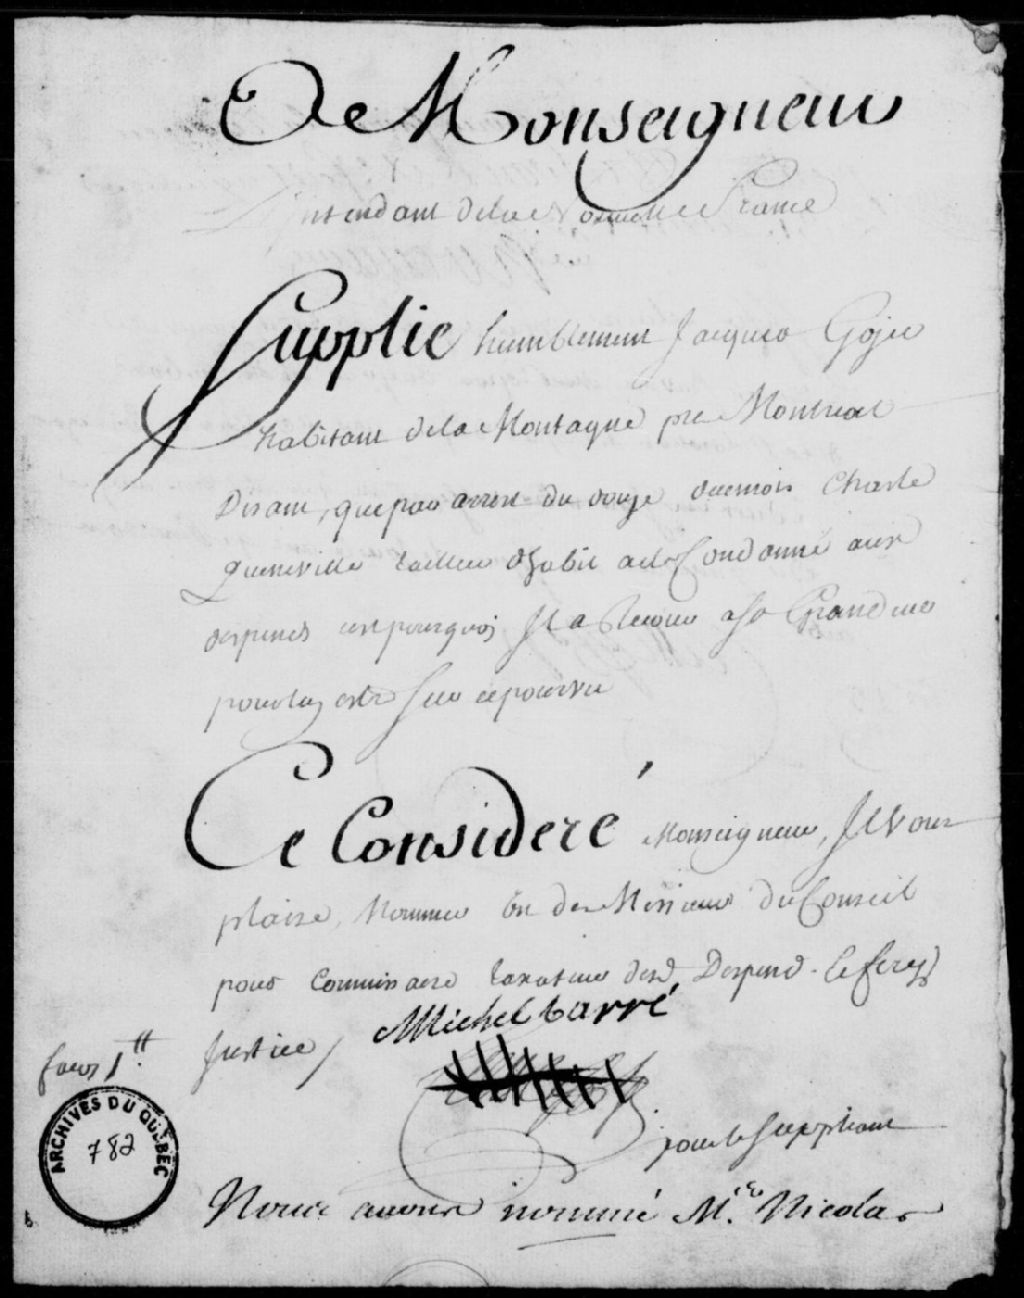 A Monseigneur
Intendant de la Nouvelle France
Supplie humblement Jacques Gojer
habitant de la Montagne pre Montreal
Disant, que par arrest du douze du mois Charle
Queneville tailleur d'habit a esté Condanné aux
despens cest pourquoi Il a Recour a sa Grandeur
pour luy estre sur ce pourvu
Ce Consideré Monseigneur, Il vous
plaise, Nommer un des Messieurs du Conseil
pour Commissaire taxateur desd Despend. Ce ferez
Justice,
Michel barré
pour le Suppliant
facs 1tt
ARCHIVES DU QUÉBEC
782
Nous avons nommé Mr. Nicolas